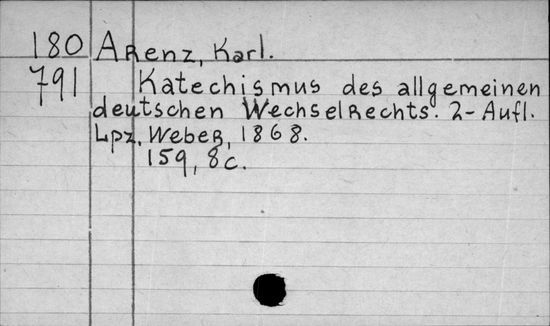 180 Arenz, Karl.
791 Katechismus des allgemeinen
deutschen Wechselrechts. 2-Aufl.
Lpz, Weber, 1868.
159, 8c.